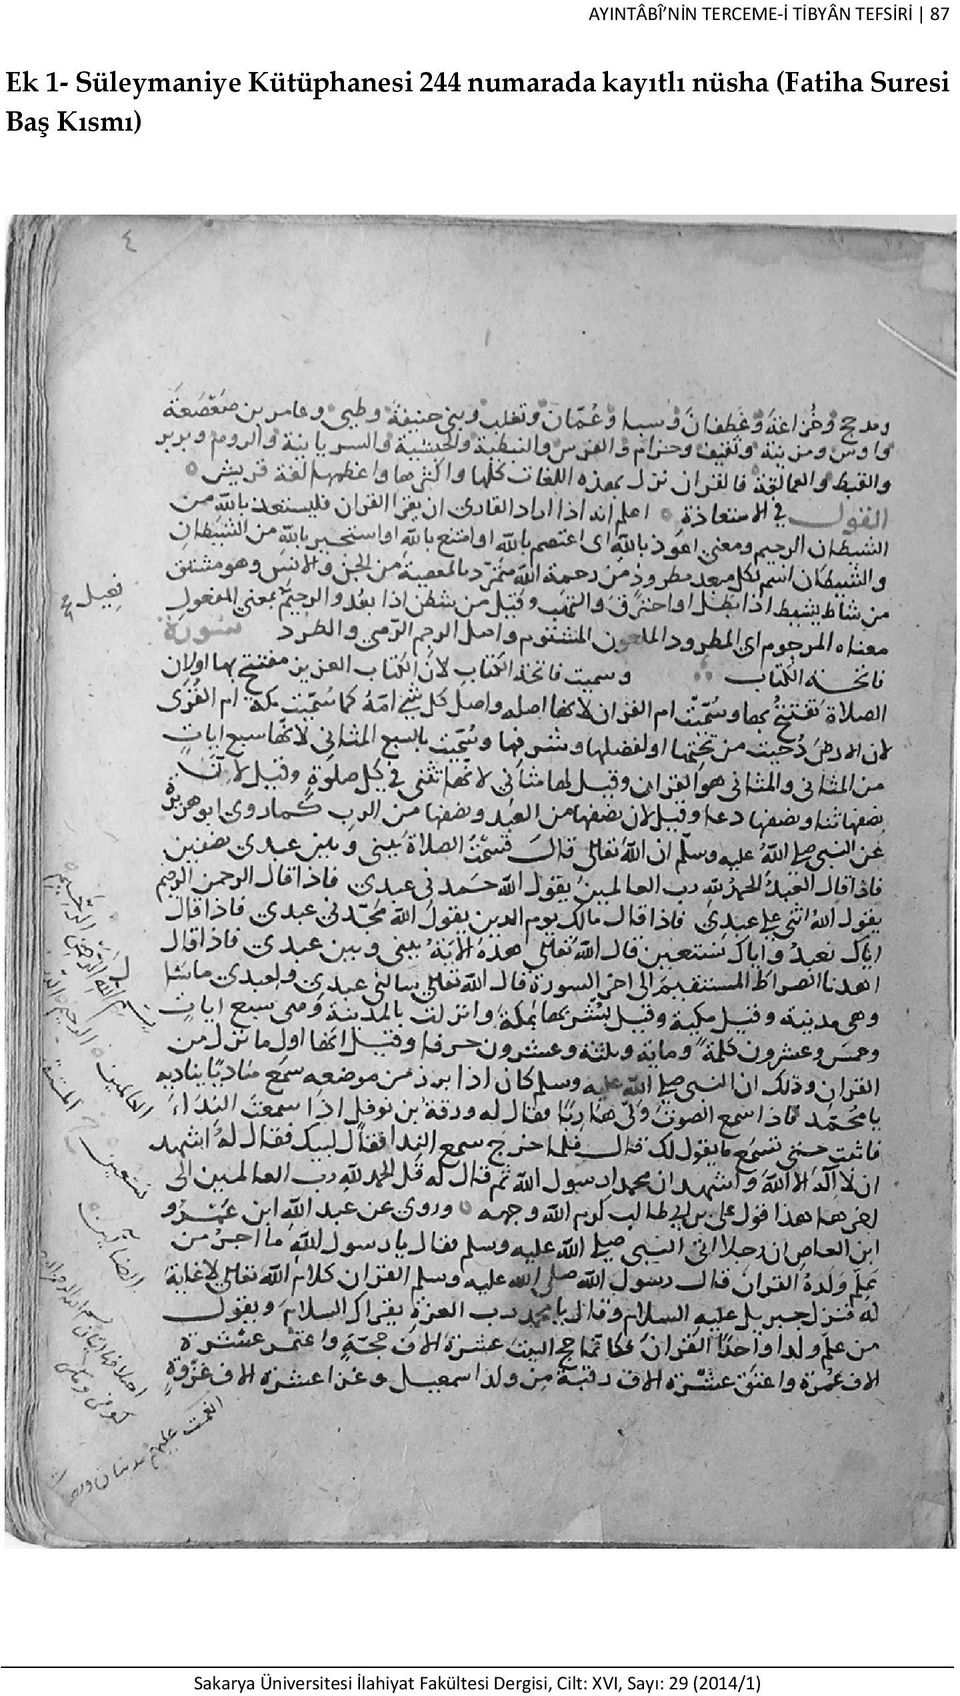 AYINTÂBÎ’NİN TERCEME-İ TİBYÂN TEFSİRİ | 87
Ek 1- Süleymaniye Kütüphanesi 244 numarada kayıtlı nüsha (Fatiha Suresi
Baş Kısmı)
٤
ومدحج وخزاعة وغطفان وسبا وعُمّان وتغلب وبني حنيفة وطيي وعامر بن صَعْصَعَة
واوس ومزينة وثقيف وجزام والفرس والنبطية والحبشية والسريانية والروم وبربر
والقبط والعمالقة فالقران نزل بهذه اللغات كلها واكثرها واعظمها لغة قريش
القول في الاستعاذة اعلم انه اذا اراد القارى ان يقرا القران فليستعذ بالله من
الشيطان الرجيم ومعنى اعوذ بالله اى اعتصم بالله او امتنع بالله او استجير بالله من الشيطان
والشيطان اسم لكل مبعد مطرود من رحمة الله متمرد بالمعصية من الجن والانس وهو مشتق
من شاط يشيط اذا بطل او احترق والتهب وقيل من شطن اذا بعد والرجيم بمعنى المفعول
معناه المرجوم اى المطرود الملعون المشتوم واصل الرجم الرمي والطرد سورة
فاتحة الكتاب وسميت فاتحة الكتاب لان الكتاب العزيز مفتتح بها اولان
الصلاة تفتتح بها وسُمّيت ام القران لانها اصله واصل كل شي امّهُ كما سُمّيت مكة ام القُرى
لان الارض دُحيت من تحتها او لفضلها وشرفها وسُمّيت بالسبع المثاني لانها سبع ايات
من المثانى والمثانى هو القران وقيل لها مثاني لانها تثنى في كل صلوة وقيل لان
نصفها ثنا ونصفها دعا وقيل لان نصفها من العبد ونصفها من الرب كما روى ابو هريرة
عن النبي صلى الله عليه وسلم ان الله تعالى قال قسمت الصلاة بيني وبين عبدي نصفين
فاذا قال العبد الحمد لله رب العالمين يقول الله حمدني عبدي فاذا قال الرحمن الرحيم
يقول الله اثنى علي عبدي فاذا قال مالك يوم الدين يقول الله مجّدني عبدي فاذا قال
اياك نعبد واياك نستعين قال الله تعالى هذه الاية بيني وبين عبدي فاذا قال
اهدنا الصراط المستقيم الى اخر السورة قال الله تعالى سالني عبدي ولعبدي ما سال
وهى مدنية وقيل مكية وقيل نزلت بمكة وانزلت بالمدينة وهي سبع ايات
وخمس وعشرون كلمة وماية وثلثة وعشرون حرفا وقيل انها اول ما نزل من
القران وذلك ان النبي صلى الله عليه وسلم كان اذا برز من موضعه سمع مناديا يناديه
يا محمد فاذا سمع الصوت ولّى هاربا فقال له ورقة بن نوفل اذا سمعت النداء
فاثبت حتى تسمع ما يقول لك قال فلما خرج سمع الندا فقال لبيك فقال له اشهد
ان لا اله الا الله واشهد ان محمدا رسول الله ثم قال له قل الحمد لله رب العالمين الى
اخرها هذا قول علي بن ابي طالب كرم الله وجهه وروي عن عبد الله ابن عمرو
ابن العاص ان رجلا اتى النبي صلى الله عليه وسلم فقال يا رسول الله ما اجر من
علّم ولدهُ القران قال رسول الله صلى الله عليه وسلم القران كلام الله تعالى لا غاية
له فنزل جبريل عليه السلام وقال يا محمد رب العزة يقراك السلام ويقول
من علم ولدا واحدا القران فكانما حج البيت عشرة الاف حجة واعتمر عشرة
الاف عمرة واعتق عشرة الاف رقبة من ولد اسمعيل وغزا عشرة الاف غزوة
فعيل
بسم الله الرحمن الرحيم
العالمين الرحيم
نستعين المستقيم
انعمت عليهم
Sakarya Üniversitesi İlahiyat Fakültesi Dergisi, Cilt: XVI, Sayı: 29 (2014/1)